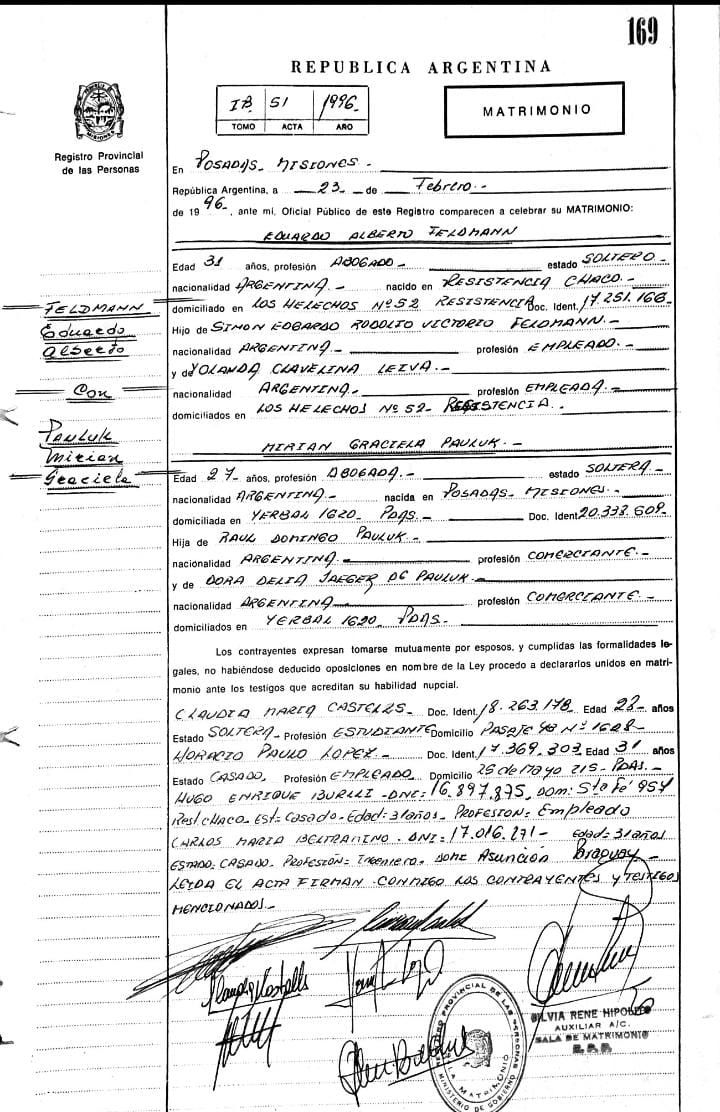 169
REPUBLICA ARGENTINA
Iº 51 1996-
TOMO ACTA AÑO
MATRIMONIO
Registro Provincial
de las Personas
En POSADAS- MISIONES-
República Argentina, a 23- de Febrero--
de 1996-, ante mí, Oficial Público de este Registro comparecen a celebrar su MATRIMONIO:
EDUARDO ALBERTO FELDMANN
Edad 31 años, profesión ABOGADO- estado SOLTERO-
nacionalidad ARGENTINA.- nacido en RESISTENCIA CHACO.-
domiciliado en LOS HELECHOS Nº 52 RESISTENCIA Doc. Ident. 17.251.166-
Hijo de SIMON EDGARDO RODOLFO VICTORIO FELDMANN.-
nacionalidad ARGENTINA.- profesión EMPLEADO.-
y de YOLANDA CLAVELINA LEIVA.-
nacionalidad ARGENTINA- profesión EMPLEADA.-
domiciliados en LOS HELECHOS Nº 52- RESISTENCIA.-
FELDMANN
Eduardo
Alberto
Con
PAULUK
Mirian
Graciela
MIRIAN GRACIELA PAULUK.-
Edad 27- años, profesión ABOGADA.- estado SOLTERA-
nacionalidad ARGENTINA.- nacida en POSADAS- MISIONES.-
domiciliada en YERBAL 1620- PDAS.- Doc. Ident. 20.338.509-
Hija de RAUL DOMINGO PAULUK.-
nacionalidad ARGENTINA.- profesión COMERCIANTE.-
y de DORA DELIA JAEGER DE PAULUK.-
nacionalidad ARGENTINA- profesión COMERCIANTE-
domiciliados en YERBAL 1620- PDAS.-
Los contrayentes expresan tomarse mutuamente por esposos, y cumplidas las formalidades le-
gales, no habiéndose deducido oposiciones en nombre de la Ley procedo a declararlos unidos en matri-
monio ante los testigos que acreditan su habilidad nupcial.
CLAUDIA MARIA Doc. Ident. 18.263.178- Edad años
Estado SOLTERA- Profesión ESTUDIANTE Domicilio PASAJE Nº 1628-
HORACIO PAULO LOPEZ- Doc. Ident. 17.369.303 Edad 31 años
Estado CASADO, Profesión EMPLEADO- Domicilio 25 de Mayo 215- PDAS.-
HUGO ENRIQUE IBURLLI -DNI: 16.897.875, Dom: Sta Fé 954
Rest/Chaco- Est: Casado- Edad: 31años- PROFESION: Empleado
CARLOS MARIA BELTRAMINO- DNI: 17.016.271- Edad= 31 años
ESTADO: CASADO- PROFESION: Ingeniero. Asunción
LEIDA EL ACTA FIRMAN CONMIGO LOS CONTRAYENTES y TESTIGOS
MENCIONADOS-
SILVIA RENE
AUXILIAR A/C.
SALA DE MATRIMONIO